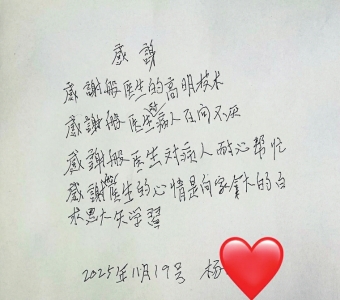 感謝
感謝般医生的高明技术
感謝般医生給病人在问不灰
感謝般医生对病人耐心帮忙
感謝般医生的心情是向家拿大的白
求恩大失学習
2025年11月19号 杨